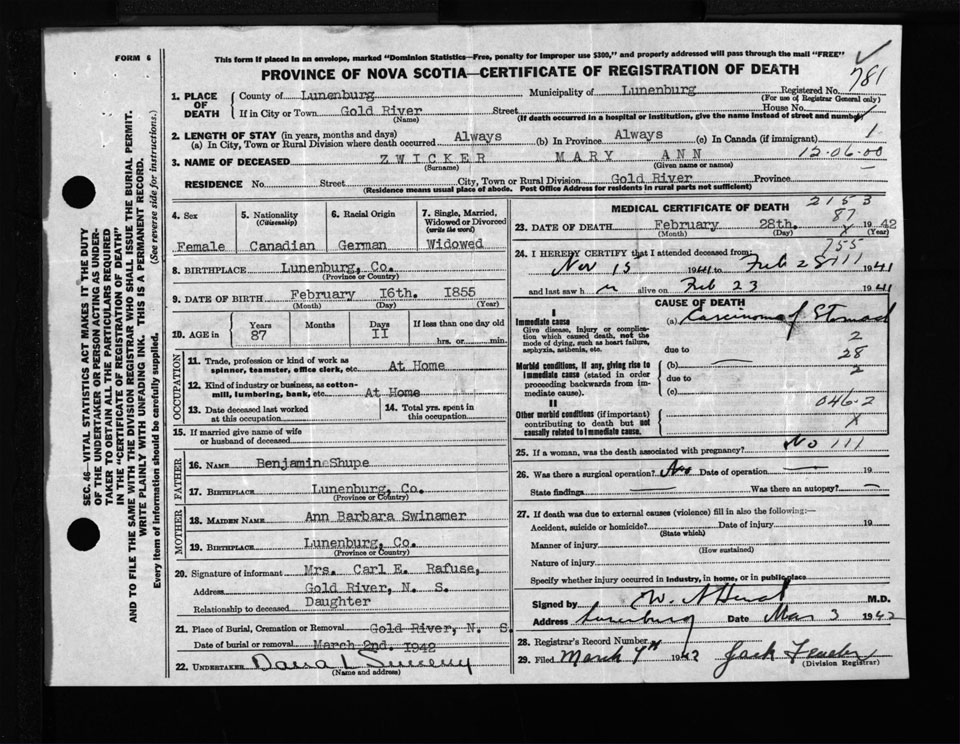 FORM 6
This form if placed in an envelope, marked "Dominion Statistics—Free, penalty for improper use $300," and properly addressed will pass through the mail "FREE"
PROVINCE OF NOVA SCOTIA—CERTIFICATE OF REGISTRATION OF DEATH
781
1. PLACE OF DEATH
County of Lunenburg Municipality of Lunenburg Registered No.
(For use of Registrar General only)
If in City or Town Gold River Street House No.
(Name) (If death occurred in a hospital or institution, give the name instead of street and number)
2. LENGTH OF STAY (in years, months and days)
(a) In City, Town or Rural Division where death occurred Always (b) In Province Always (c) In Canada (if immigrant) 1
3. NAME OF DECEASED ZWICKER MARY ANN 12-06-00
(Surname) (Given name or names)
RESIDENCE No. Street City, Town or Rural Division Gold River Province
(Residence means usual place of abode. Post Office Address for residents in rural parts not sufficient)
SEC. 46—VITAL STATISTICS ACT MAKES IT THE DUTY
OF THE UNDERTAKER OR PERSON ACTING AS UNDER-
TAKER TO OBTAIN ALL THE PARTICULARS REQUIRED
IN THE "CERTIFICATE OF REGISTRATION OF DEATH"
AND TO FILE THE SAME WITH THE DIVISION REGISTRAR WHO SHALL ISSUE THE BURIAL PERMIT.
WRITE PLAINLY WITH UNFADING INK. THIS IS A PERMANENT RECORD.
Every item of information should be carefully supplied. (See reverse side for instructions.)
4. Sex
Female
5. Nationality
(Citizenship)
Canadian
6. Racial Origin
German
7. Single, Married,
Widowed or Divorced
(write the word)
Widowed
8. BIRTHPLACE Lunenburg, Co.
(Province or Country)
9. DATE OF BIRTH February 16th. 1855
(Month) (Day) (Year)
10. AGE in
Years Months Days If less than one day old
87 II hrs. or min.
OCCUPATION
11. Trade, profession or kind of work as
spinner, teamster, office clerk, etc. At Home
12. Kind of industry or business, as cotton-
mill, lumbering, bank, etc. At Home
13. Date deceased last worked
at this occupation
14. Total yrs. spent in
this occupation
15. If married give name of wife
or husband of deceased
FATHER
16. NAME Benjamine Shupe
17. BIRTHPLACE Lunenburg, Co.
(Province or Country)
MOTHER
18. MAIDEN NAME Ann Barbara Swinamer
19. BIRTHPLACE Lunenburg, Co.
(Province or Country)
20. Signature of informant Mrs. Carl E. Rafuse,
Address Gold River, N. S.
Relationship to deceased Daughter
21. Place of Burial, Cremation or Removal Gold River, N. S.
Date of burial or removal March 2nd. 1942
22. UNDERTAKER
(Name and address)
MEDICAL CERTIFICATE OF DEATH
2153
87
23. DATE OF DEATH February 28th. X 1942
(Month) (Day) (Year)
755
24. I HEREBY CERTIFY that I attended deceased from:
Nov 15 1941 to Feb 28 111 1941
and last saw h alive on Feb 23 1941
CAUSE OF DEATH
I
Immediate cause
Give disease, injury or complica-
tion which caused death, not the
mode of dying, such as heart failure,
asphyxia, asthenia, etc.
(a) Carcinoma of Stomach
2
due to
28
Morbid conditions, if any, giving rise to
immediate cause (stated in order
proceeding backwards from im-
mediate cause).
(b)
2
due to
(c)
046-2
II
Other morbid conditions (if important)
contributing to death but not
causally related to immediate cause.
X
25. If a woman, was the death associated with pregnancy? No 111
26. Was there a surgical operation? No Date of operation 19
State findings Was there an autopsy?
27. If death was due to external causes (violence) fill in also the following:—
Accident, suicide or homicide? Date of injury 19
(State which)
Manner of injury
(How sustained)
Nature of injury
Specify whether injury occurred in industry, in home, or in public place
Signed by M.D.
Address Lunenburg Date Mar 3 1942
28. Registrar's Record Number
29. Filed March 7th 1942 Jack
(Division Registrar)